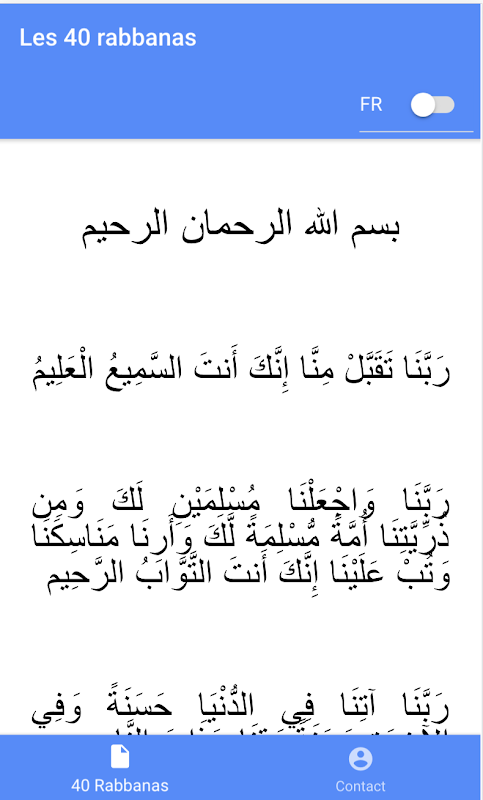 Les 40 rabbanas
FR
بسم الله الرحمان الرحيم
رَبَّنَا تَقَبَّلْ مِنَّا إِنَّكَ أَنتَ السَّمِيعُ الْعَلِيمُ
رَبَّنَا وَاجْعَلْنَا مُسْلِمَيْنِ لَكَ وَمِن
ذُرِّيَّتِنَا أُمَّةً مُّسْلِمَةً لَّكَ وَأَرِنَا مَنَاسِكَنَا
وَتُبْ عَلَيْنَا إِنَّكَ أَنتَ التَّوَّابُ الرَّحِيم
رَبَّنَا آتِنَا فِي الدُّنْيَا حَسَنَةً وَفِي
40 Rabbanas
Contact